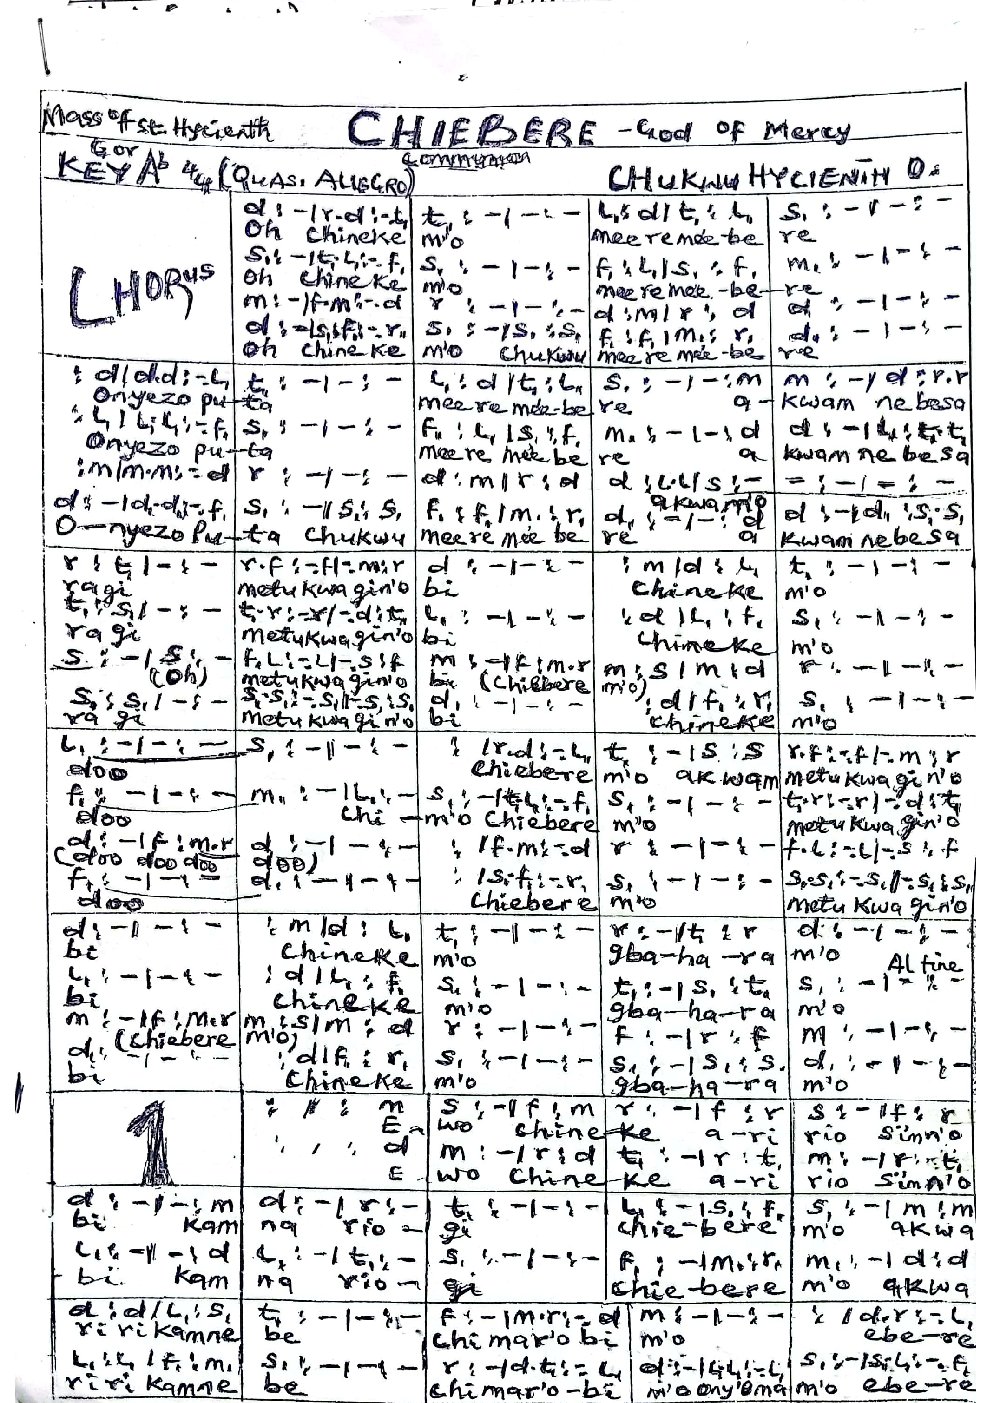 Mass of St. Hycienth CHIEBERE - God of Mercy
G or Communion
KEY Ab 4/4 (QUASI ALLEGRO) CHUKWU HYCIENTH O.
CHORUS
d : - | r . d : - t, t, : - | - : - L, : d | t, : L, s, : - | - : -
Oh Chineke m'o meere mee-be re
s, : - | t, . L, : - f, s, : - | - : - f, : L, | s, : f, m, : - | - : -
Oh Chineke m'o meere mee-be-re
m : - | f . m : - d r : - | - : - d : m | r : d d : - | - : -
d : - | s, . f, : - r, s, : - | s, : s, f, : f, | m, : r, d, : - | - : -
Oh Chineke m'o Chukwu meere mee-be re
: d | d . d : - L, t, : - | - : - L, : d | t, : L, s, : - | - : m m : - | d : r . r
Onyezo pu-ta meere mee-be re a- kwam nebesa
: L, | L, . L, : - f, s, : - | - : - f, : L, | s, : f, m, : - | - : d d : - | L, : t, . t,
Onyezo pu-ta meere mee be re a kwam nebesa
: m | m . m : - d r : - | - : - d : m | r : d d : L . L | s : - - : - | - : -
akwam'o
d : - | d . d : - f, s, : - | s, : s, f, : f, | m, : r, d, : - | - : d d : - | d, : s, . s,
O-nyezo Pu-ta Chukwu meere mee be re a kwam nebesa
r : t, | - : - r . f : - f | - m : r d : - | - : - : m | d : L, t, : - | - : -
ragi metukwa gin'o bi Chineke m'o
t, : s, | - : - t, . r : - r | - d : t, L, : - | - : - : d | L, : f, s, : - | - : -
ragi metukwa gin'o bi Chineke m'o
s : - | s : - f . L : - L | - s : f m : - | f : m . r m : s | m : d r : - | - : -
(Oh) metukwa gin'o bi (Chiebere m'o)
s, : s, | - : - s, . s, : - s, | - s, : s, d, : - | - : - : d | f, : r, s, : - | - : -
ragi metukwa gin'o bi Chineke m'o
L, : - | - : - s, : - | - : - : | r . d : - L, t, : - | s : s r . f : - f | - m : r
doo Chiebere m'o akwam metukwa gin'o
f, : - | - : - m, : - | L, : - s, : - | t, . L, : - f, s, : - | - : - t, . r : - r | - d : t,
doo Chi - m'o Chiebere m'o metukwa gin'o
d : - | f : m . r d : - | - : - : | f . m : - d r : - | - : - f . L : - L | - s : f
(doo doo doo doo)
f, : - | - : - d, : - | - : - : | s, . f, : - r, s, : - | - : - s, . s, : - s, | - s, : s,
doo Chiebere m'o metukwa gin'o
d : - | - : - : m | d : L, t, : - | - : - r : - | t, : r d : - | - : -
bi Chineke m'o gba-ha-ra m'o
Al fine
L, : - | - : - : d | L, : f, s, : - | - : - t, : - | s, : t, s, : - | - : -
bi Chineke m'o gba-ha-ra m'o
m : - | f : m . r m : s | m : d r : - | - : - f : - | r : f m : - | - : -
(Chiebere m'o)
d, : - | - : - : d | f, : r, s, : - | - : - s, : - | s, : s, d, : - | - : -
bi Chineke m'o gba-ha-ra m'o
1 : | : m s : - | f : m r : - | f : r s : - | f : r
E- wo Chine-ke a-ri rio Simn'o
: | : d m : - | r : d t, : - | r : t, m : - | r : t,
E wo Chine-ke a-ri rio Simn'o
d : - | - : m d : - | r : - t, : - | - : - L, : - | s, : f, s, : - | m : m
bi kam na rio - gi chie-bere m'o akwa
L, : - | - : d L, : - | t, : - s, : - | - : - f, : - | m, : r, m, : - | d : d
bi kam na rio - gi chie-bere m'o akwa
d : d | L, : s, t, : - | - : - f : - | m . r : - d m : - | - : - : | d . r : - L,
ririkamne be Chimar'o bi m'o ebe-re
L, : L, | f, : m, s, : - | - : - r : - | d . t, : - L, d : - | L, . L, : - L, s, : - | s, . L, : - f,
ririkamne be chimar'o-bi m'o ony'oma m'o ebe-re